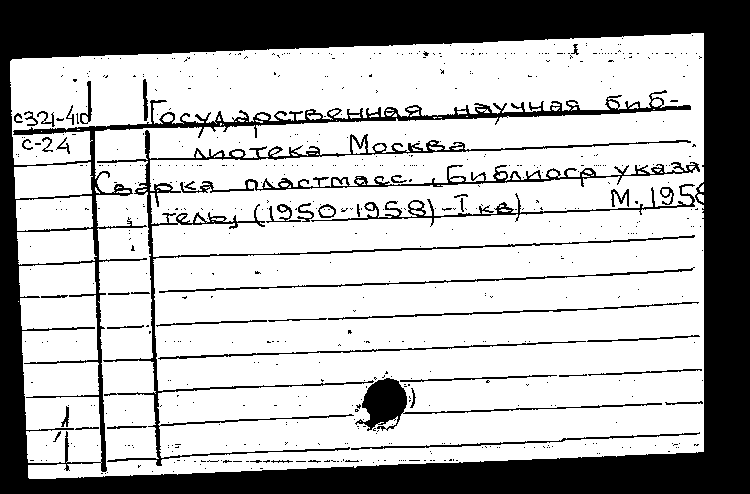 с321-410 Государственная научная биб-
с-24 лиотека Москва
Сварка пластмасс. Библиогр указа-
тель, (1950-1958)-I кв) : М., 1958
1